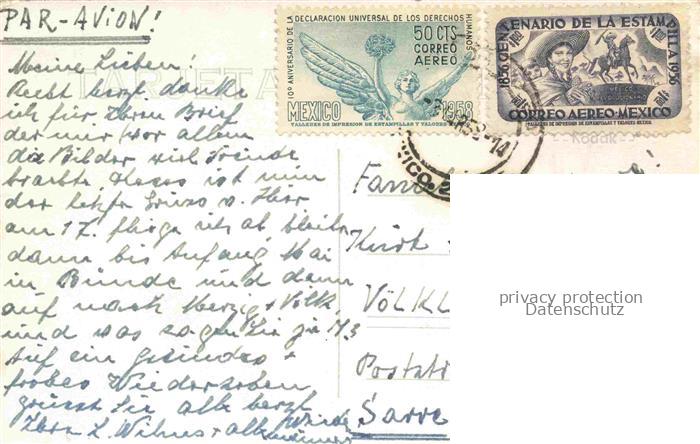 PAR-AVION!
10º ANIVERSARIO DE LA DECLARACION UNIVERSAL DE LOS DERECHOS HUMANOS
50 CTS
CORREO
AEREO
MEXICO 1958
TALLERES DE IMPRESION DE ESTAMPILLAS Y VALORES
1856 CENTENARIO DE LA ESTAMPILLA 1956
CORREO AEREO-MEXICO
TALLERES DE IMPRESION DE ESTAMPILLAS Y VALORES
Kodak
TARJETA
Meine Lieben!
Recht herzl danke
ich für Ihren Brief
der mir vor allem
die Bilder viel Freude
brachte. Dieses ist nun
der letzte Gruss v. Hier
am 17. fliege ich ab bleibe
dann bis Anfang Mai
in Bünde und dann
auf nach Merzig + Völk.
und was sagen Sie zu
Auf ein gesundes +
frohes Wiedersehen
grüsst Sie alle herzl
Ihre L. + alle
Fam
Kurt
VÖLKL
Postst
Sarre
privacy protection
Datenschutz